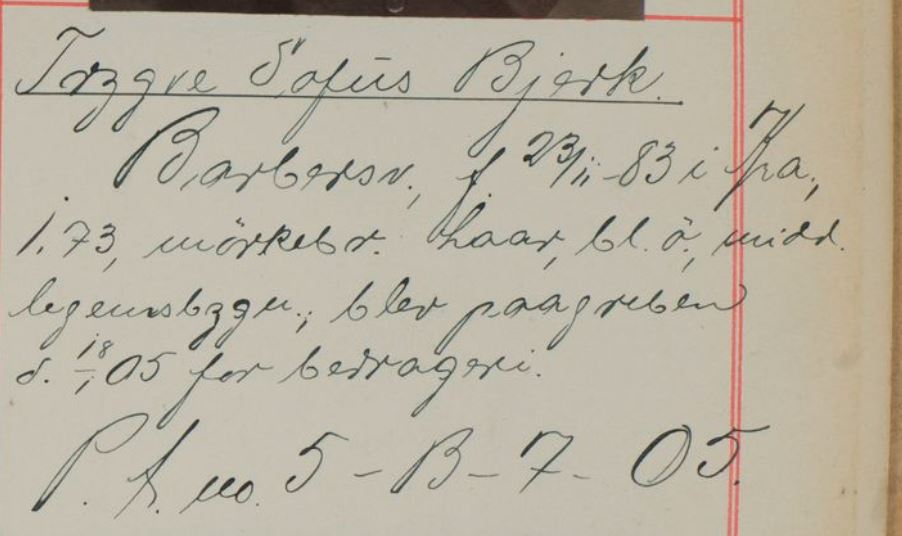 Trygve Sofus Bjerk.
Barbersv., f. 23/11-83 i Kra.,
1.73, mörkebr. haar, bl. ö., midd.
legemsbygn.; blev paagreben
d. 18/1 05 for bedrageri.
P. f. no. 5-B-7-05.